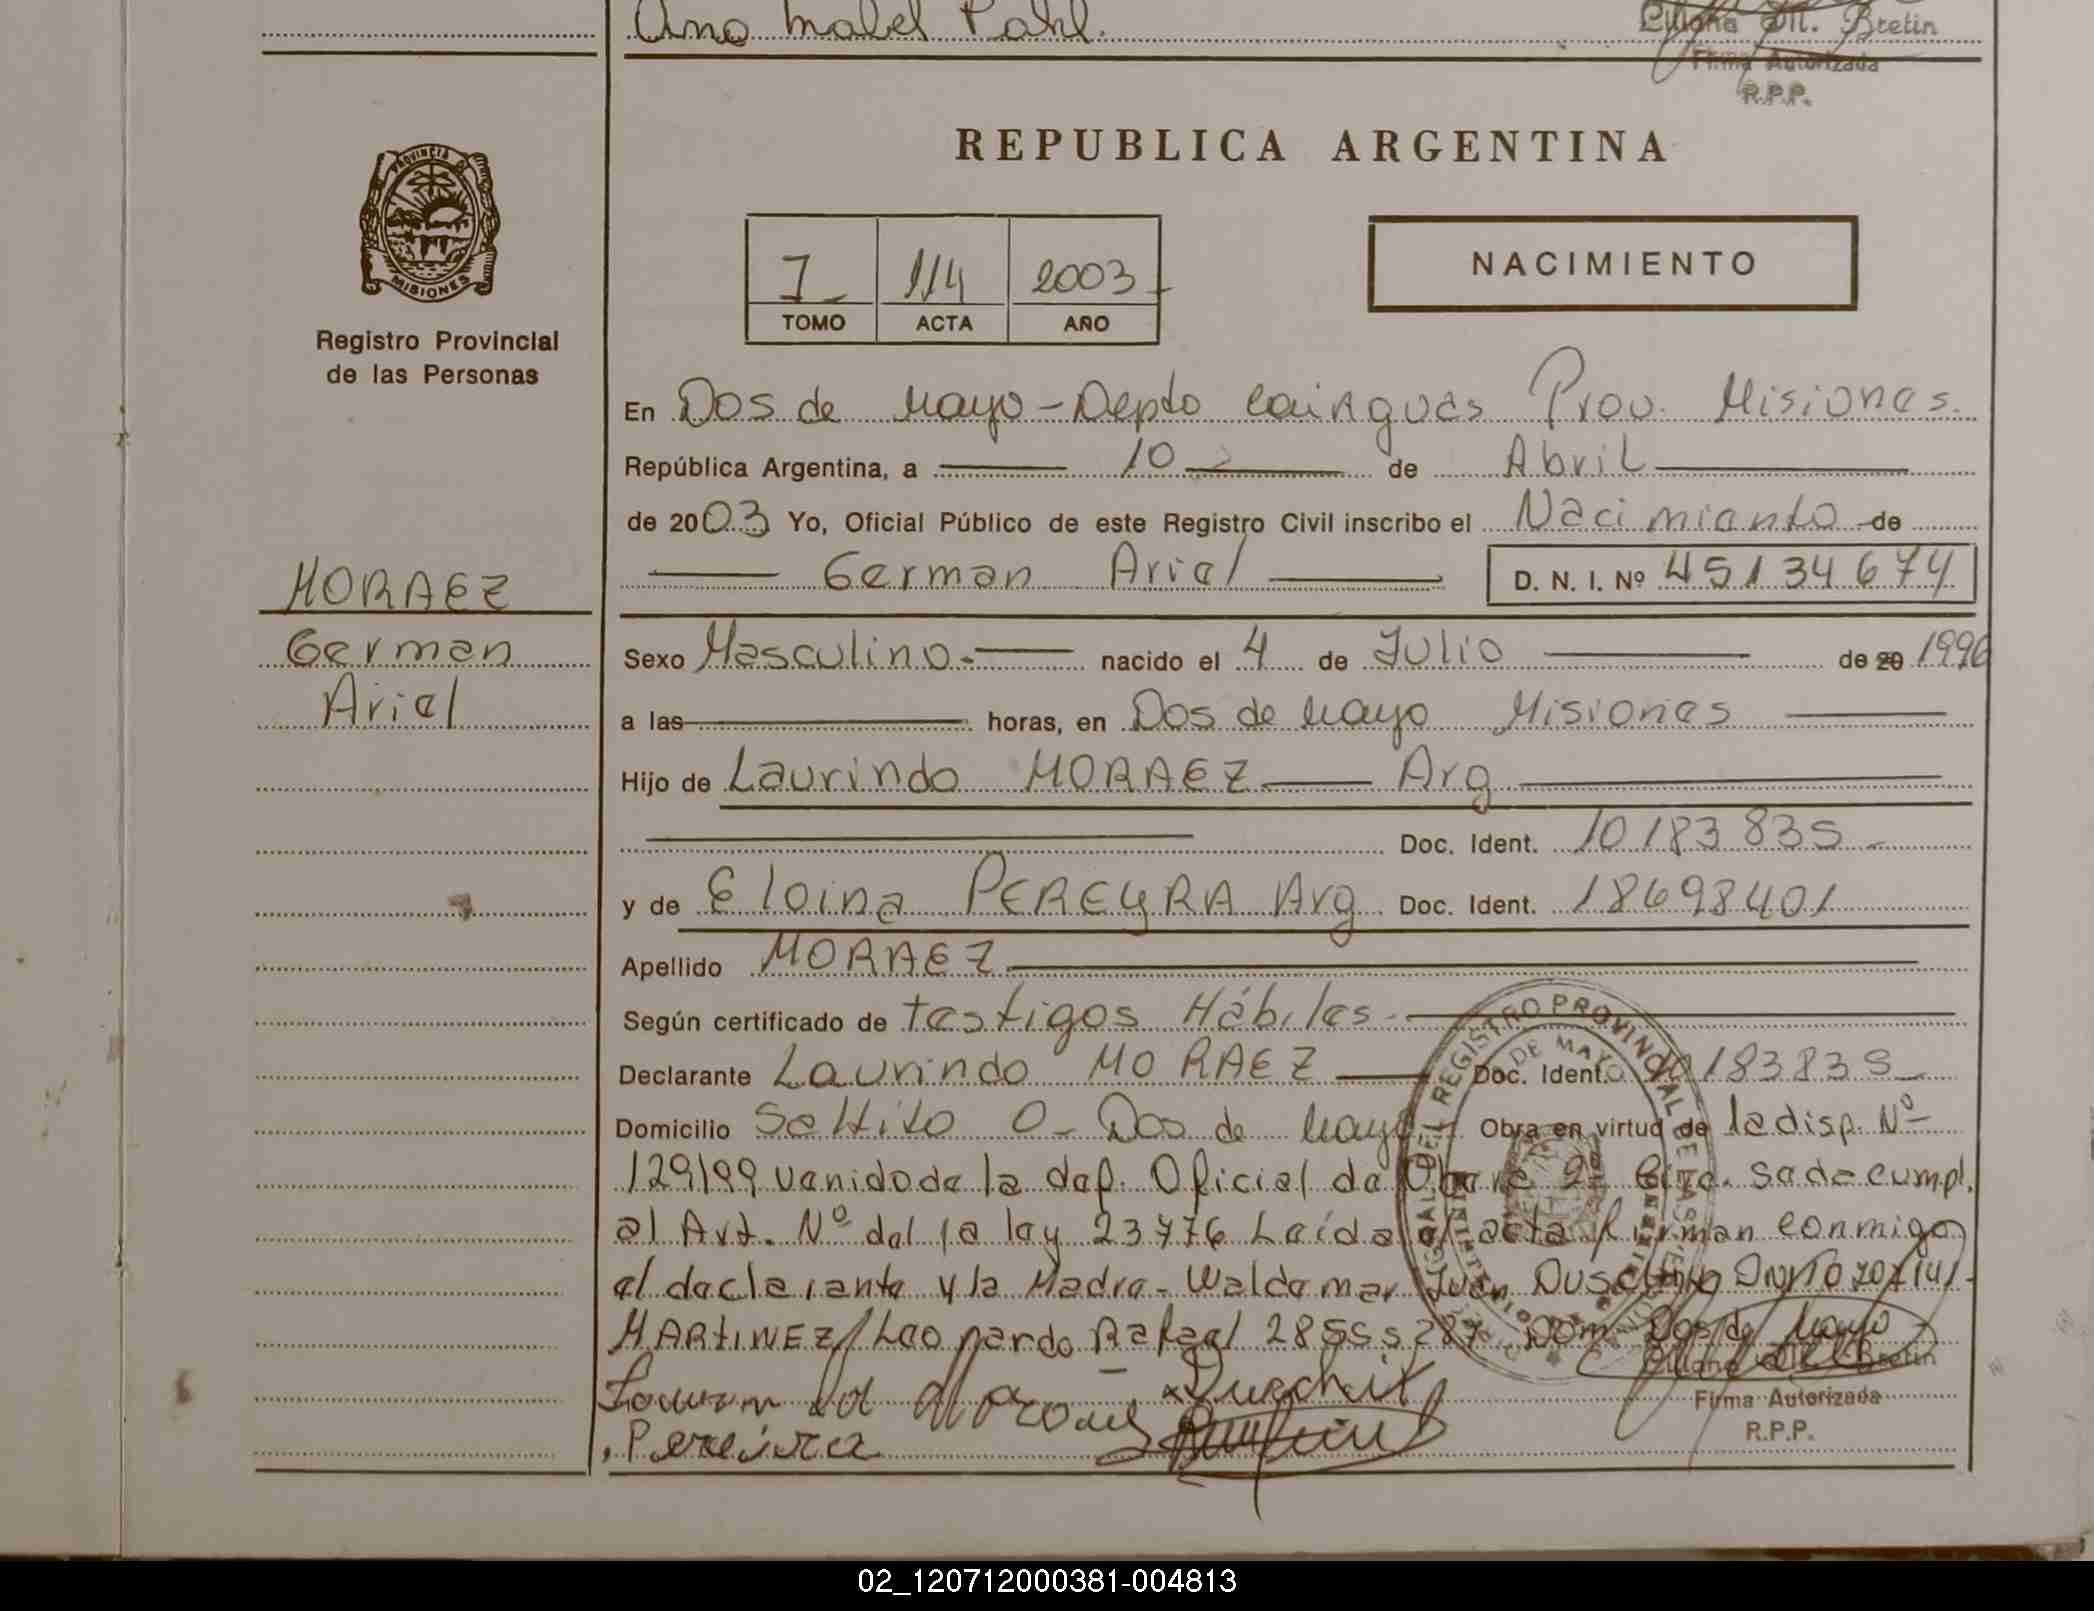 Ana Mabel Pahl.
Liliana M. Bretin
Firma Autorizada
R.P.P.
REPUBLICA ARGENTINA
PROVINCIA DE MISIONES
Registro Provincial
de las Personas
I 114 2003
TOMO ACTA AÑO
NACIMIENTO
En Dos de Mayo - Depto Cainguas Prov. Misiones.
República Argentina, a 10 de Abril
de 2003 Yo, Oficial Público de este Registro Civil inscribo el Nacimiento de
German Ariel D. N. I. Nº 45134674
MORAEZ
German
Ariel
Sexo Masculino.- nacido el 4 de Julio de 20 1996
a las horas, en Dos de Mayo Misiones
Hijo de Laurindo MORAEZ Arg
Doc. Ident. 10183835
y de Eloina PEREYRA Arg Doc. Ident. 18698401
Apellido MORAEZ
Según certificado de testigos Hábiles.
Declarante Laurindo MORAEZ Doc. Ident. 10183835
Domicilio Saltito 0 - Dos de Mayo Obra en virtud de la disp. Nº
129/99 venido de la def. Oficial de Obera 2º Circ. se de cumpl.
al Art. Nº del la ley 23776 Leída el acta firman conmigo
el declarante y la Madre - Waldemar Juan
MARTINEZ / Leopardo Rafael Dom Dos de Mayo
Liliana M. Bretin
Duschik
Firma Autorizada
Pereira
R.P.P.
REGISTRO PROVINCIAL DE LAS
DOS DE MAYO
02_120712000381-004813